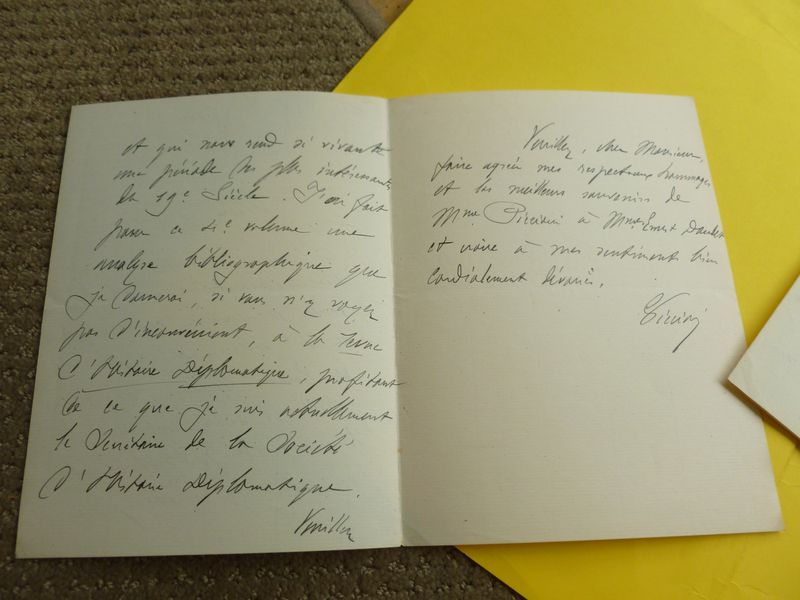 et qui nous rend si vivante
une période des plus intéressantes
du 19e Siècle. J'en fait
pour ce 4e volume une
analyse bibliographique que
je donnerai, si vous n'y voyez
pas d'inconvénient, à la Revue
d'Histoire Diplomatique, profitant
de ce que je suis actuellement
le Secrétaire de la Société
d'Histoire Diplomatique.
Veuillez
Veuillez, cher Monsieur,
faire agréer mes respectueux hommages
et les meilleurs souvenirs de
Mme à Mme Ernest Daudet
et croire à mes sentiments bien
cordialement dévoués.